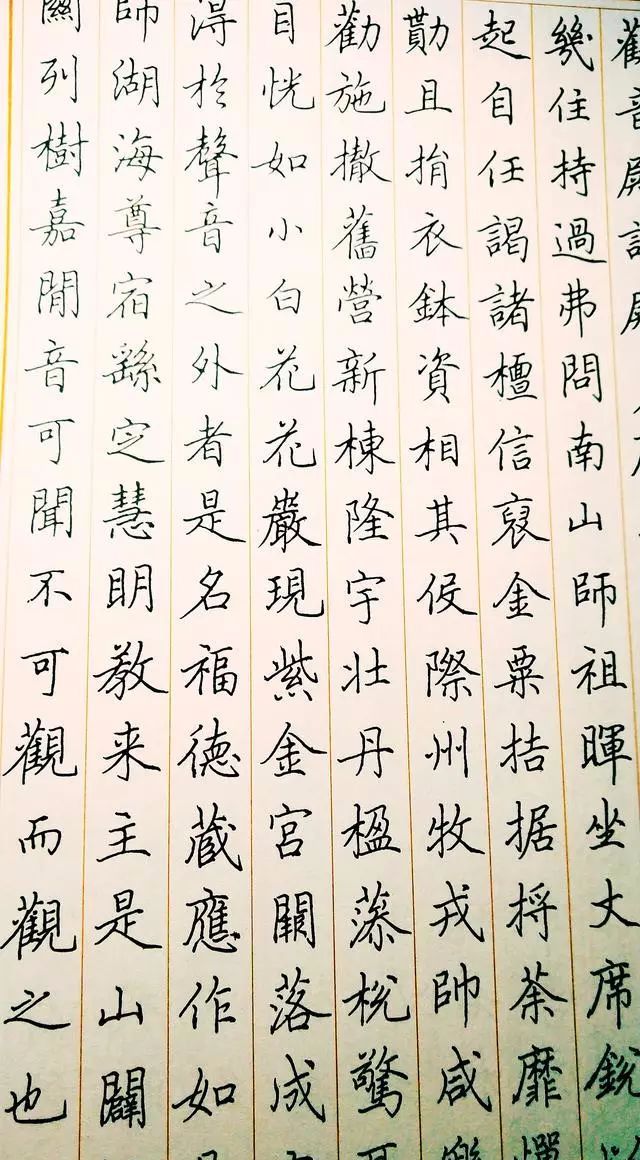 觀音殿記殿
幾住持過弗問南山師祖暉坐丈席銳以
起自任謁諸檀信裒金粟拮据捋荼靡憚
勩且捐衣鉢資相其役際州牧戎帥咸樂
勸施撤舊營新棟隆宇壯丹楹藻梲驚
目恍如小白花花嚴現紫金宮闕落成
得於聲音之外者是名福德藏應作如是
師湖海尊宿繇定慧明教来主是山闢
列樹嘉閒音可聞不可觀而觀之也